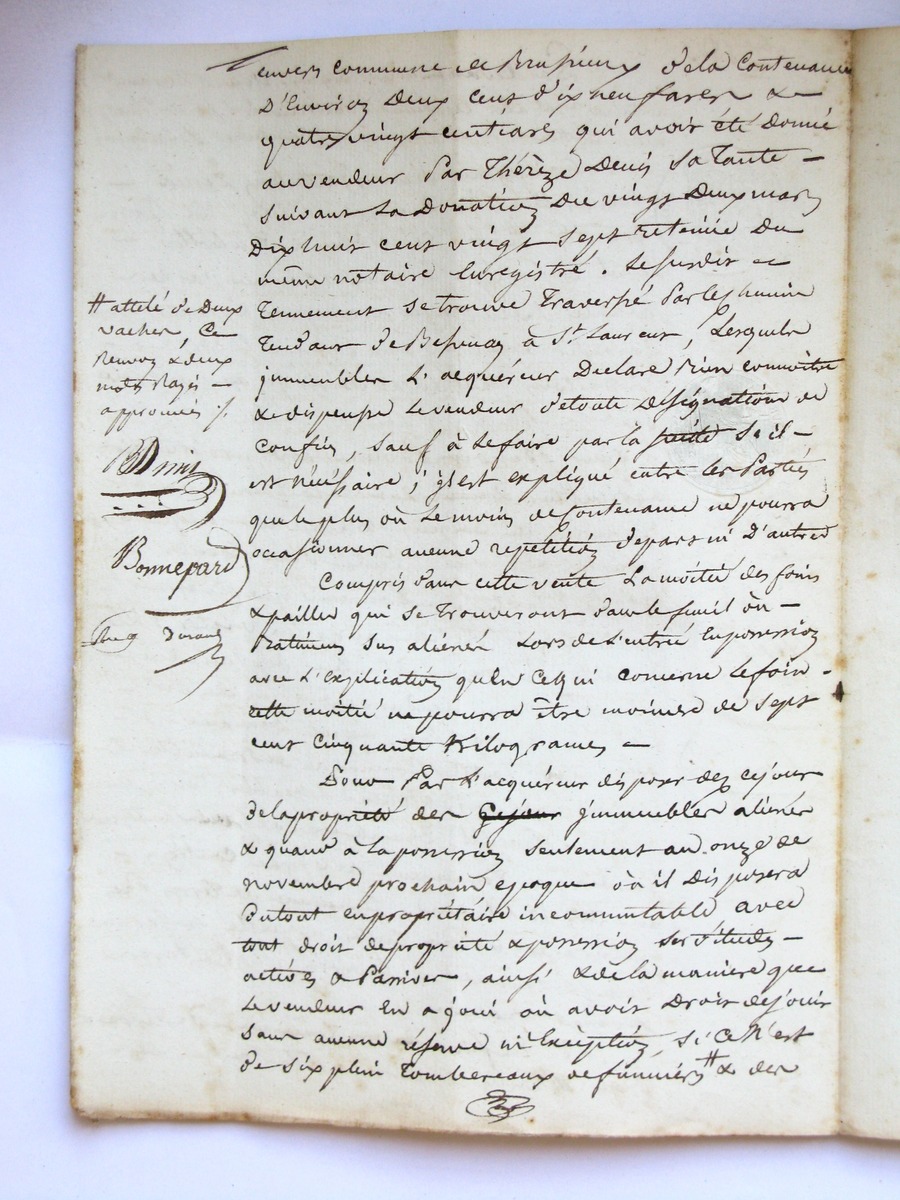 envers commune de Brussieux de la Contenance
D'Environ Deux cent dix neuf ares &
quatre vingt centiares qui avoit été Donné
au vendeur Par Thérèze Denis sa Tante
suivant La Donation Du vingt Deux mars
Dix huit cent vingt sept retenue Du
même notaire Enregistré. Le susdit
Tennement se trouve Traversé Par le chemin
Tendant de Bessenay à St Laurent, Lesquels
jmmeubles L'acquéreur Declare Bien connoitre
& dispense Le vendeur de toute Désignation de
confins, sauf à Le faire par la suite s'il
est nécéssaire ; il est expliqué entre les Parties
que le plus où Le moins de Contenance ne pourra
occasionner aucune repetition de part ni D'autre
Compris dans cette vente La moitié des foins
& pailles qui se trouveront dans le fenil où
Batimens sus aliéné Lors de L'entrée En possession
avec L'Explication qu'En Ce qui concerne Le foin
cette moitié ne pourra être moindre de sept
cent Cinquante Kilogrames
Pour Par L'acquéreur disposer dès ce jour
de la propriété des jmmeubles aliénés
& quand à la possession seulement au onze de
novembre prochain epoque où il Disposera
du tout en propriétaire incommutable avec
tout droit de propriété & possession servitudes
actives & Passives, ainsi & de la maniere que
Le vendeur En a joui où avoit Droit de jouir
sans aucune réserve ni Exception, si Ce N'est
de six plein Tombereaux de fumiers # & des
# attelé de Deux
vaches, Ce
Renvoy & deux
mots Rayés
approuvés ./.
BDenis
Bonnepard
Durand